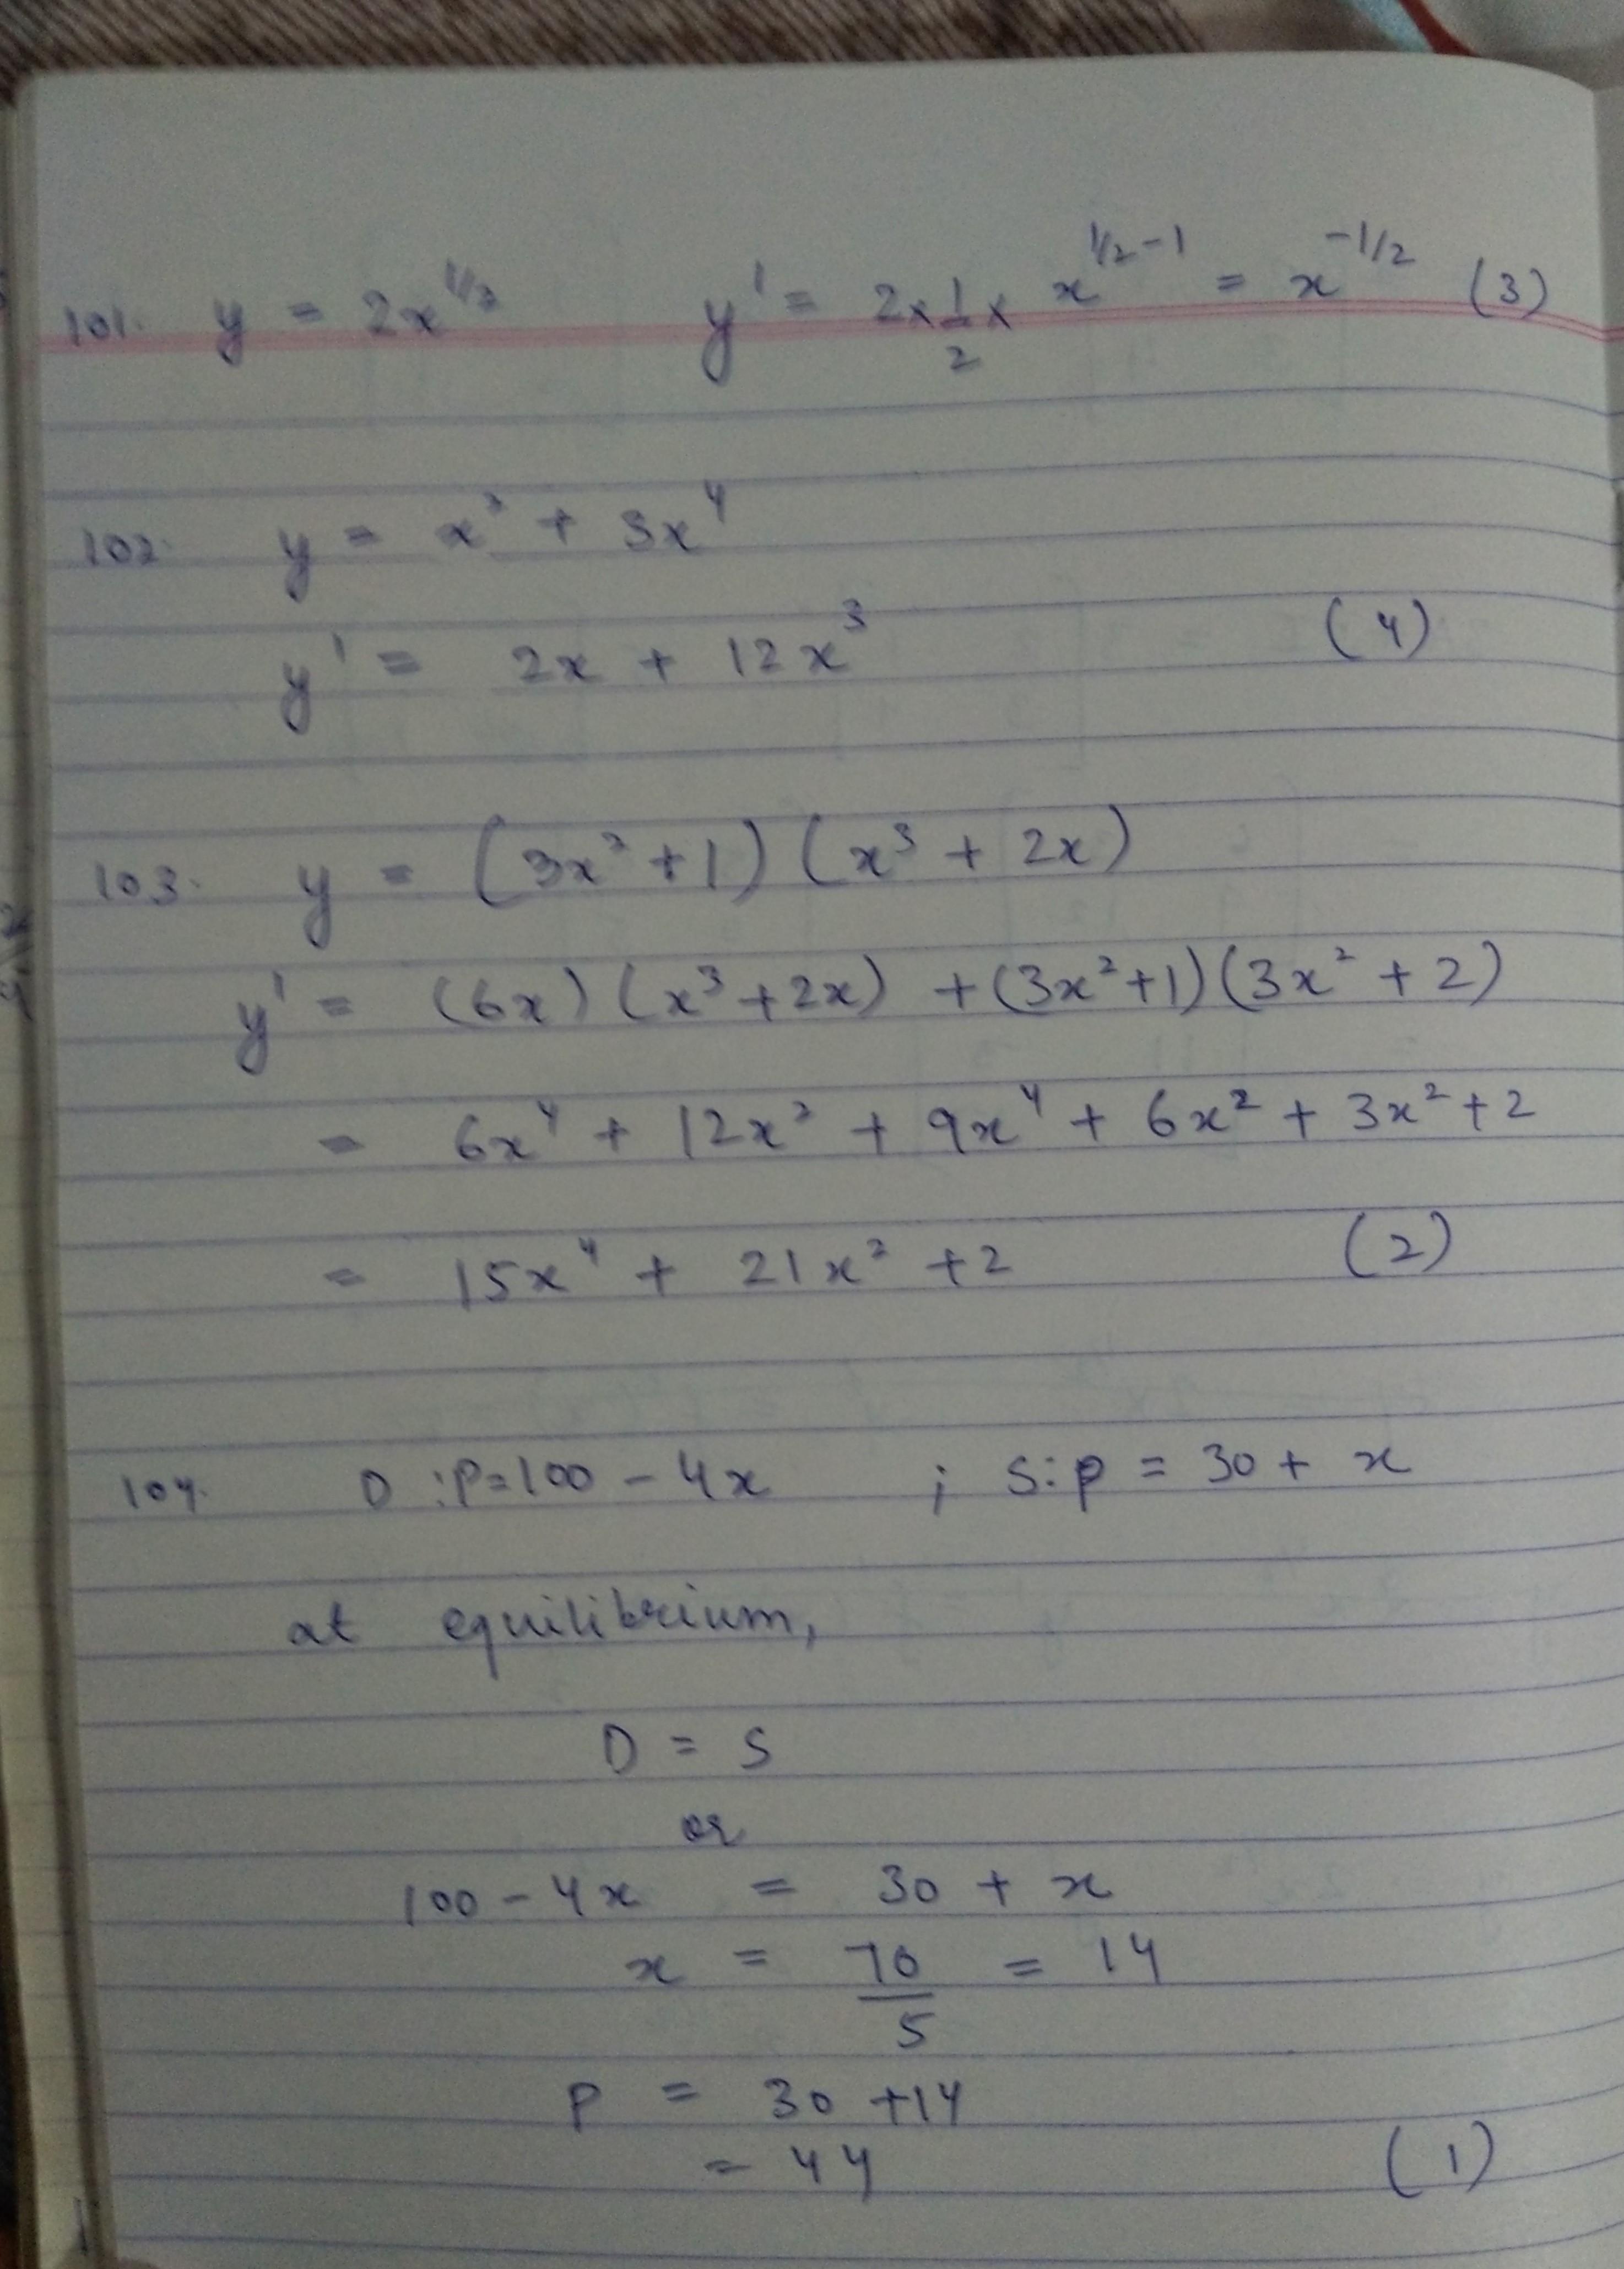 101. y = 2x^1/2 y' = 2×1/2× x^1/2-1 = x^-1/2 (3)
102. y = x² + 3x⁴
y' = 2x + 12x³ (4)
103. y = (3x²+1)(x³ + 2x)
y' = (6x)(x³+2x) + (3x²+1)(3x² + 2)
= 6x⁴ + 12x² + 9x⁴ + 6x² + 3x²+2
= 15x⁴ + 21x² +2 (2)
104. D :P=100 - 4x ; S:p = 30 + x
at equilibrium,
D = S
or
100 - 4x = 30 + x
x = 70/5 = 14
P = 30 +14
= 44 (1)